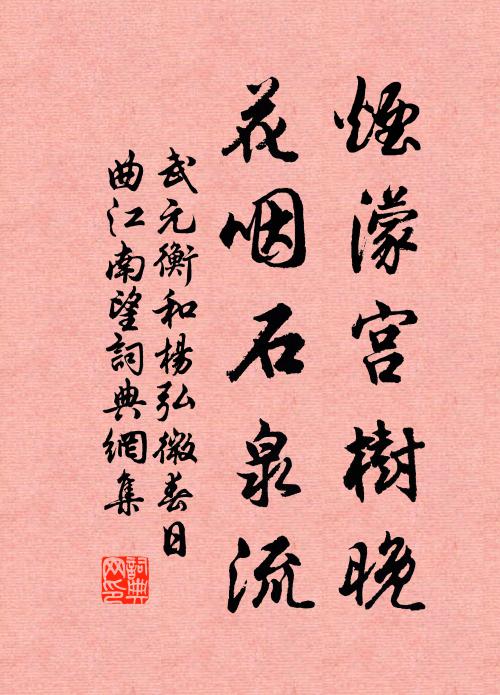 煙濛宮樹晚
花咽石泉流
武元衡和楊弘微春日
曲江南望詞典網集
詞典網印